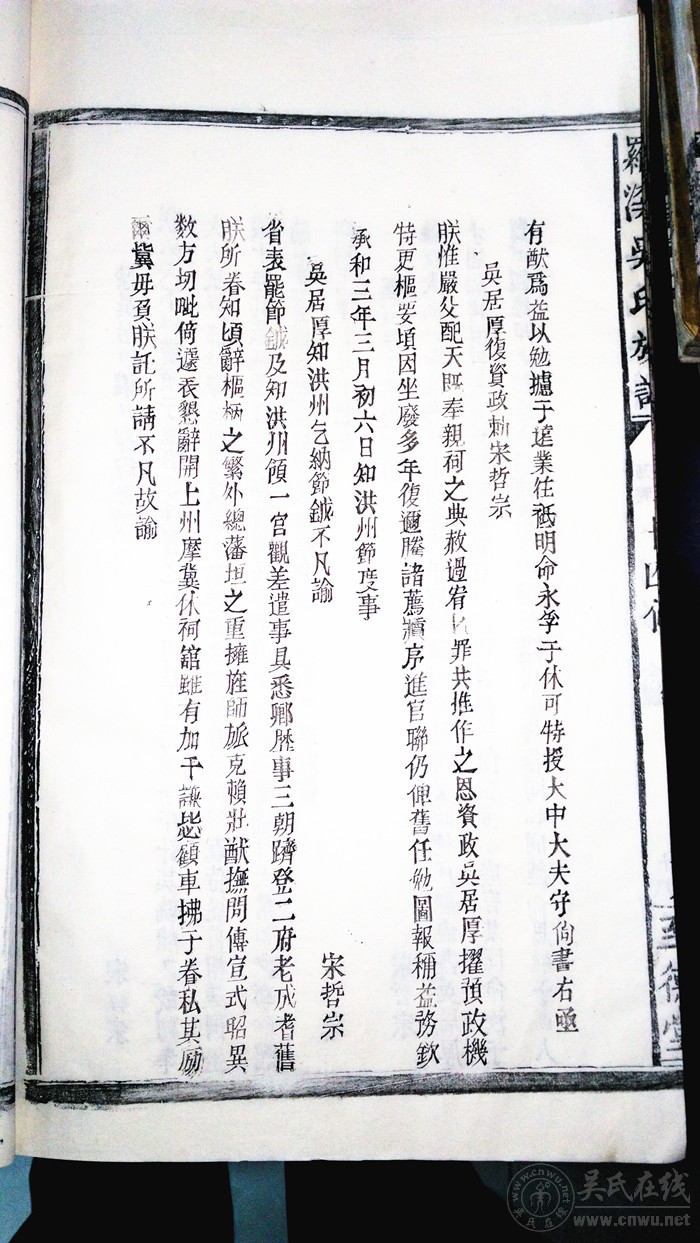 羅 吳氏族譜
至德堂
有猷爲益以勉攄于遠業徃祗明命永孚于休可特授大中大夫守尙書右丞
吳居厚復資政勅宋哲宗
朕惟嚴父配天旣奉親祠之典赦過宥罪共推作之恩資政吳居厚擢預政機
特更樞要頃因坐廢多年復邇騰諸薦牘序進官聯仍俾舊任勉圖報稱益務欽
承和三年三月初六日知洪州節度事
吳居厚知洪州乞納節鉞不凡諭
宋哲宗
省表罷節鉞及知洪州領一宮觀差遣事具悉卿歴事三朝躋登二府老成耆舊
朕所眷知頃辭樞柄之繁外總藩垣之重擁旌師旅克賴壯猷撫問傳宣式昭異
数方切毗倚遽表懇辭開上州摩冀休祠舘雖有加于謙毖顧車拂于眷私其励
爾冀毋負朕託所請不凡故諭
吴氏在线
www.cnwu.net